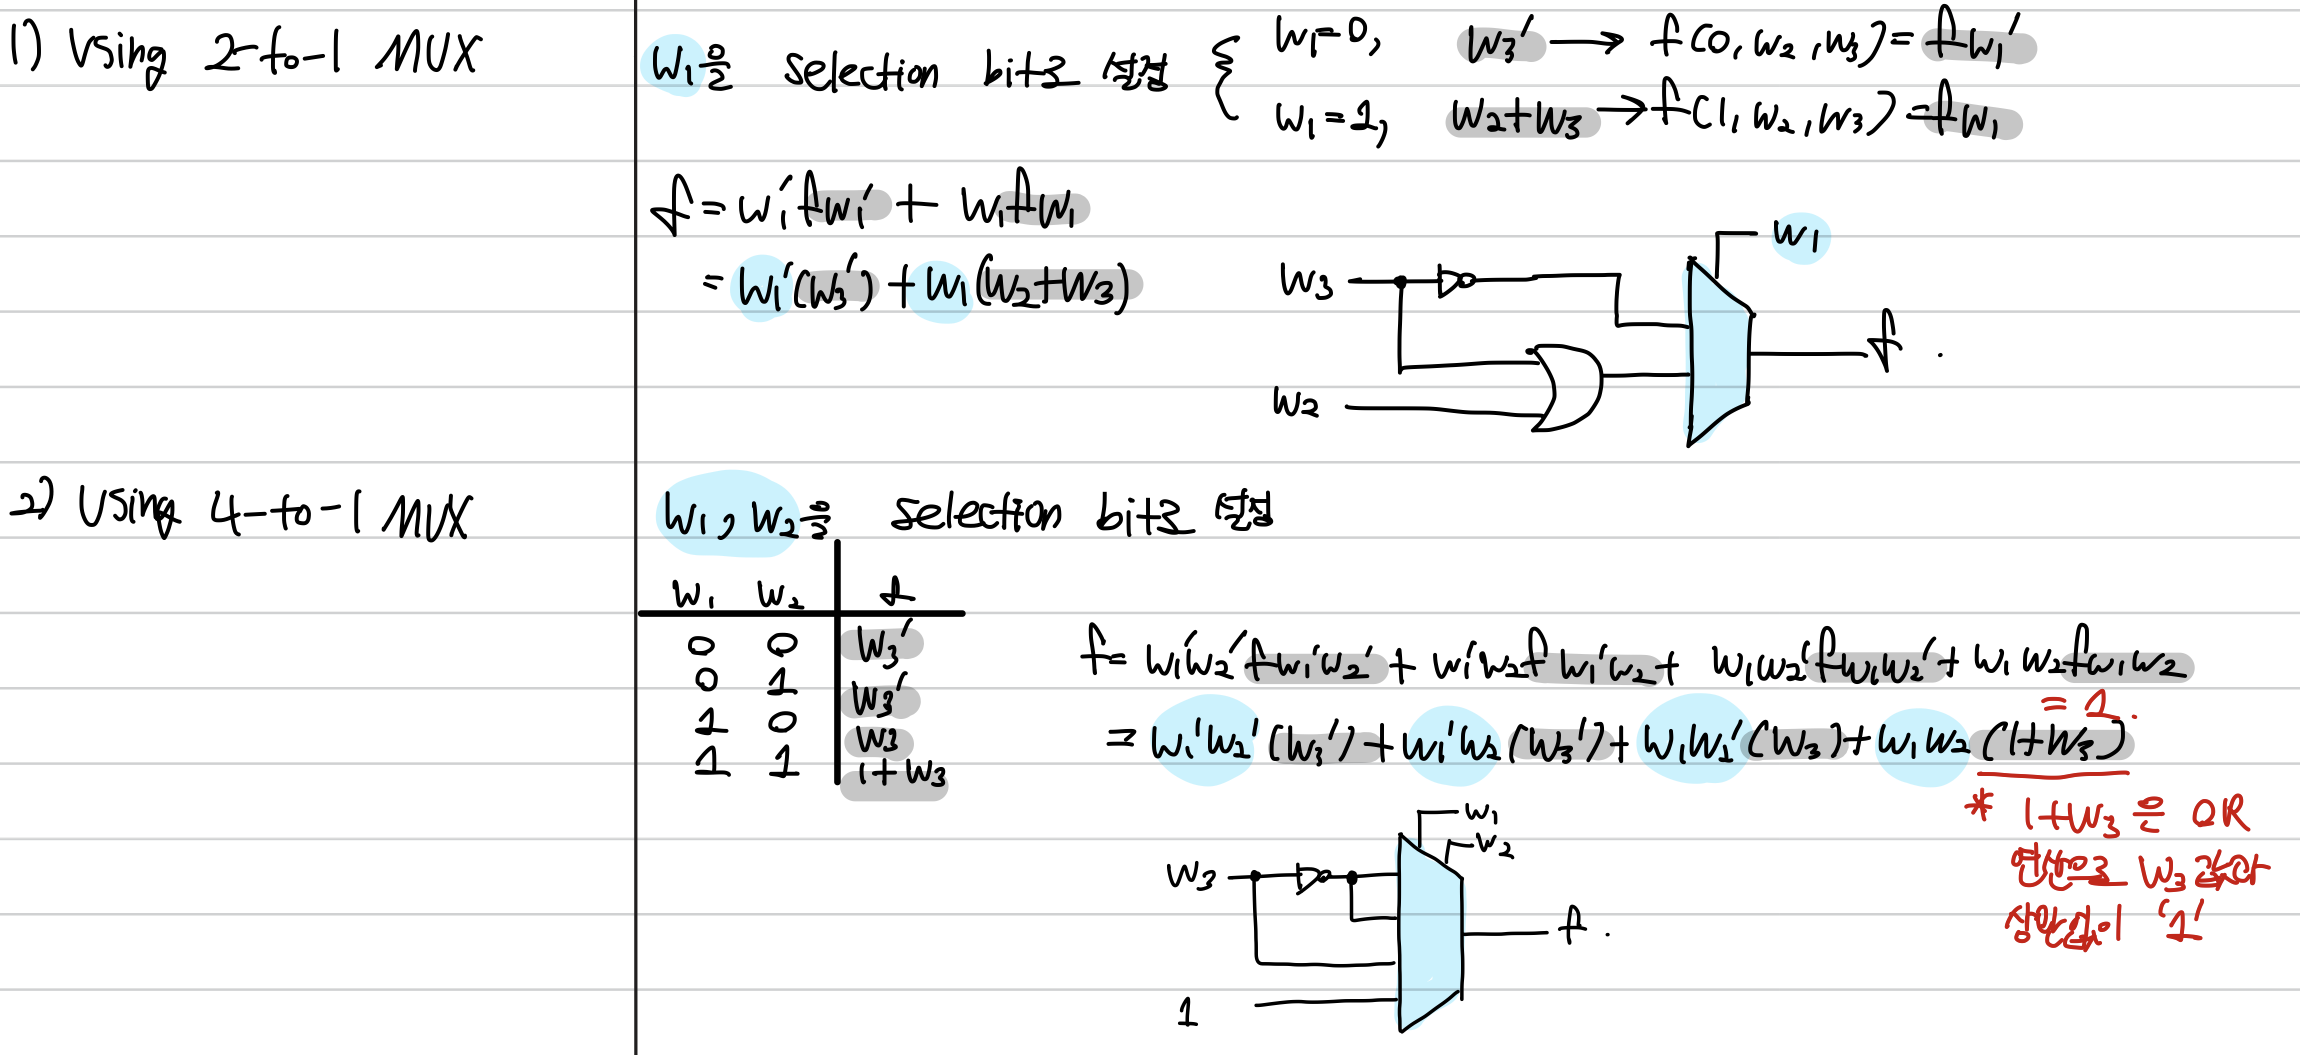 1) Using 2-to-1 MUX
w₁을 selection bit로 설정
w₁=0, w₃' → f(0, w₂, w₃) = fw₁'
w₁=1, w₂+w₃ → f(1, w₂, w₃) = fw₁
f = w₁'fw₁' + w₁fw₁
= w₁'(w₃') + w₁(w₂+w₃)
w₁
w₃
f.
w₂
2) Using 4-to-1 MUX
w₁, w₂를 selection bit로 설정
w₁ w₂ f
0 0 w₃'
0 1 w₃'
1 0 w₃
1 1 1+w₃
f = w₁'w₂'fw₁'w₂' + w₁'w₂fw₁'w₂ + w₁w₂'fw₁w₂' + w₁w₂fw₁w₂
= 1.
= w₁'w₂'(w₃') + w₁'w₂(w₃') + w₁w₁'(w₃) + w₁w₂(1+w₃)
* 1+w₃은 OR
연산으로 w₃ 값와
상관없이 '1'
w₁
w₂
w₃
f.
1